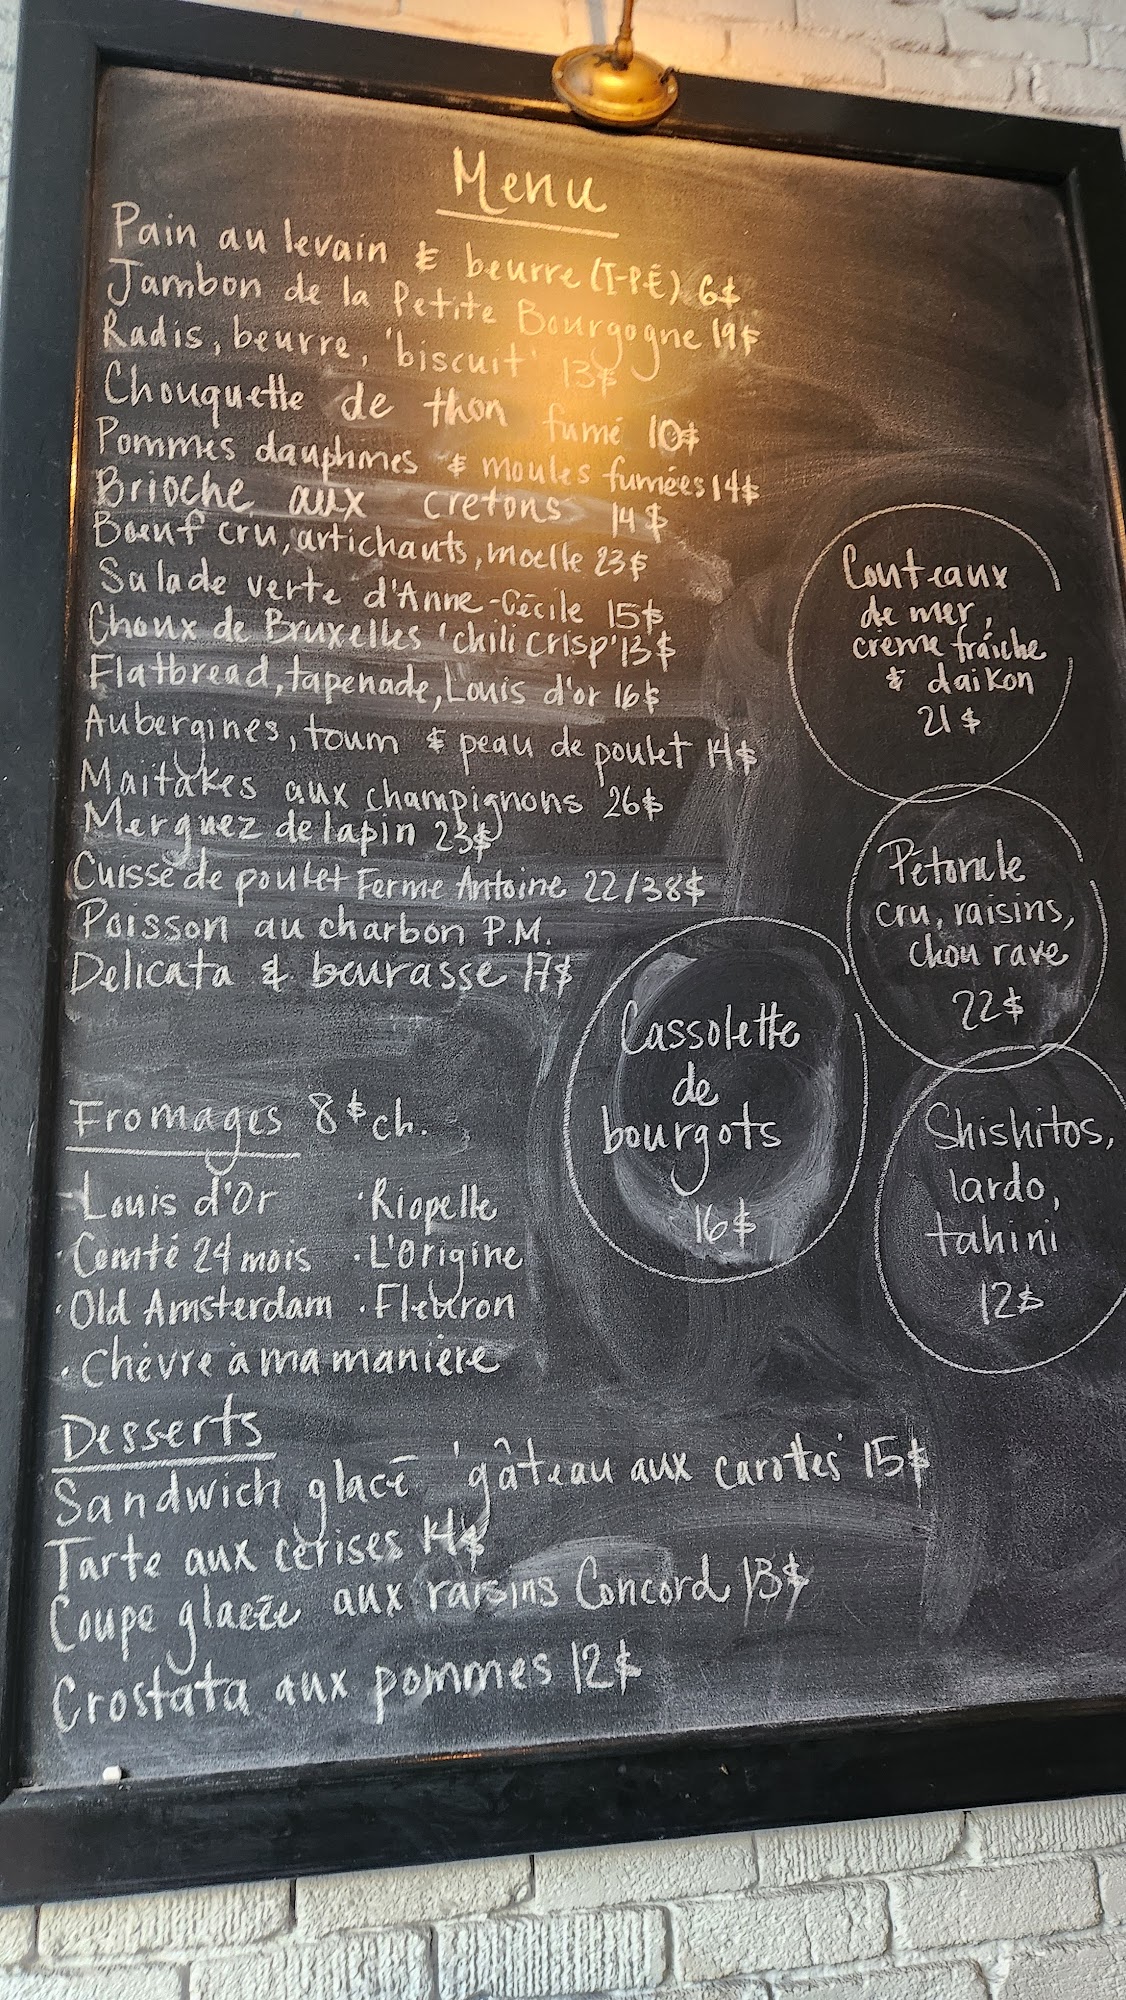 Menu
Pain au levain & beurre (I-P-É) 6$
Jambon de la Petite Bourgogne 19$
Radis, beurre, 'biscuit' 13$
Chouquette de thon fumé 10$
Pommes dauphines & moules fumées 14$
Brioche aux cretons 14$
Bœuf cru, artichauts, moelle 23$
Salade verte d'Anne-Cécile 15$
Choux de Bruxelles 'chili crisp' 13$
Flatbread, tapenade, Louis d'or 16$
Aubergines, toum & peau de poulet 14$
Maitakes aux champignons 26$
Merguez de lapin 23$
Cuisse de poulet Ferme Antoine 22/38$
Poisson au charbon P.M.
Delicata & beurasse 17$
Couteaux
de mer,
crème fraîche
& daikon
21$
Pétoncle
cru, raisins,
chou rave
22$
Cassolette
de
bourgots
16$
Shishitos,
lardo,
tahini
12$
Fromages 8$ ch.
- Louis d'Or
· Riopelle
· Comté 24 mois
· L'Origine
· Old Amsterdam
· Fleuron
· Chèvre à ma manière
Desserts
Sandwich glacé 'gâteau aux carottes' 15$
Tarte aux cerises 14$
Coupe glacée aux raisins Concord 13$
Crostata aux pommes 12$